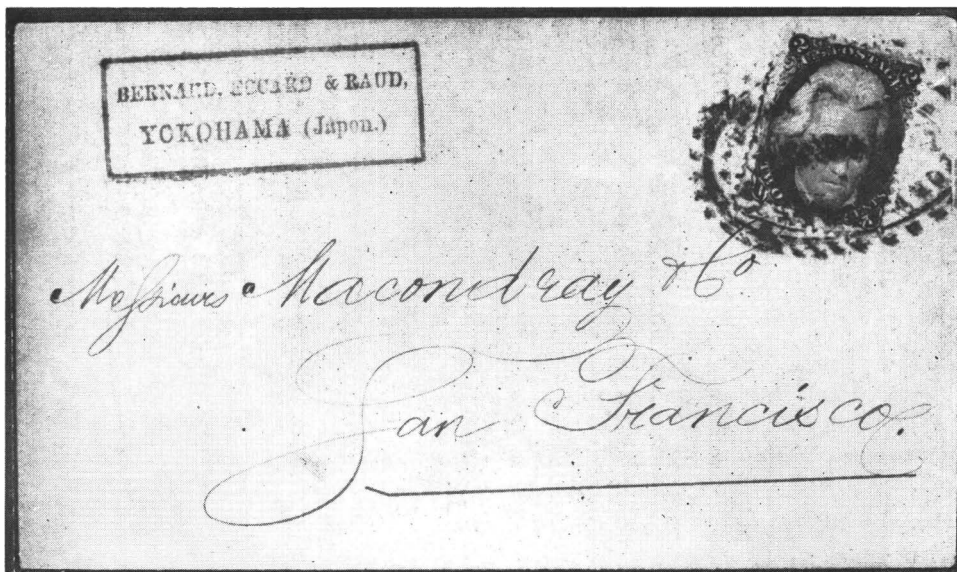 BERNARD, ECCARD & RAUD,
YOKOHAMA (Japon.)
Messieurs Macondray & Co
San Francisco.